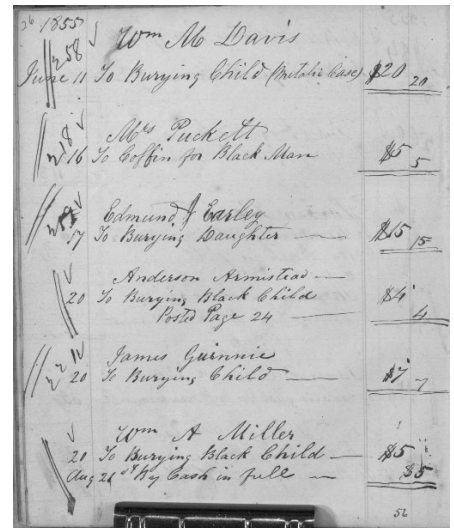 26 1855
58 Wm M Davis
June 11 To Burying Child (Metalic Case) $20 20
Mrs Puckett
16 To Coffin for Black Man $5 5
Edmund J Earley
17 To Burying Daughter $15 15
Anderson Armistead
20 To Burying Black Child $4
Posted Page 24 4
James Guinnie
20 To Burying Child $7 7
Wm A Miller
20 To Burying Black Child $5
Aug 2d By Cash in full $5
56